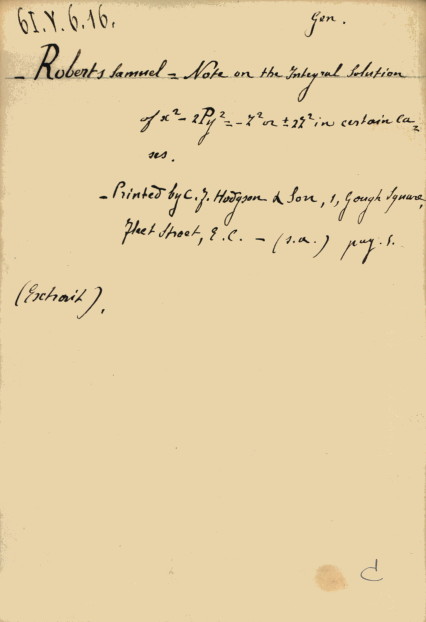 61.V.6.16.
Gen.
- Roberts Samuel = Note on the Integral Solution
of x² - 2Py² = - z² or ± 2z² in certain Ca=
ses.
- Printed by C. F. Hodgson & Son, 1, Gough Square,
Fleet Street, E.C. - (s.a.) pag. 5.
(Extrait).
C